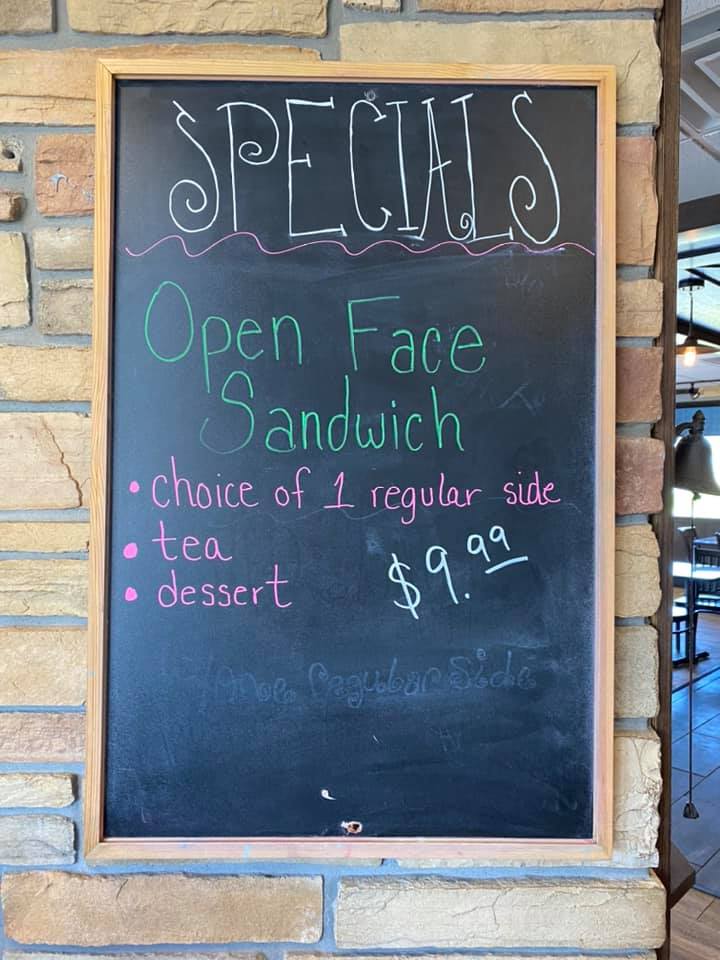 SPECIALS
Open Face
Sandwich
• choice of 1 regular side
• tea
• dessert $9.99
Regular Side